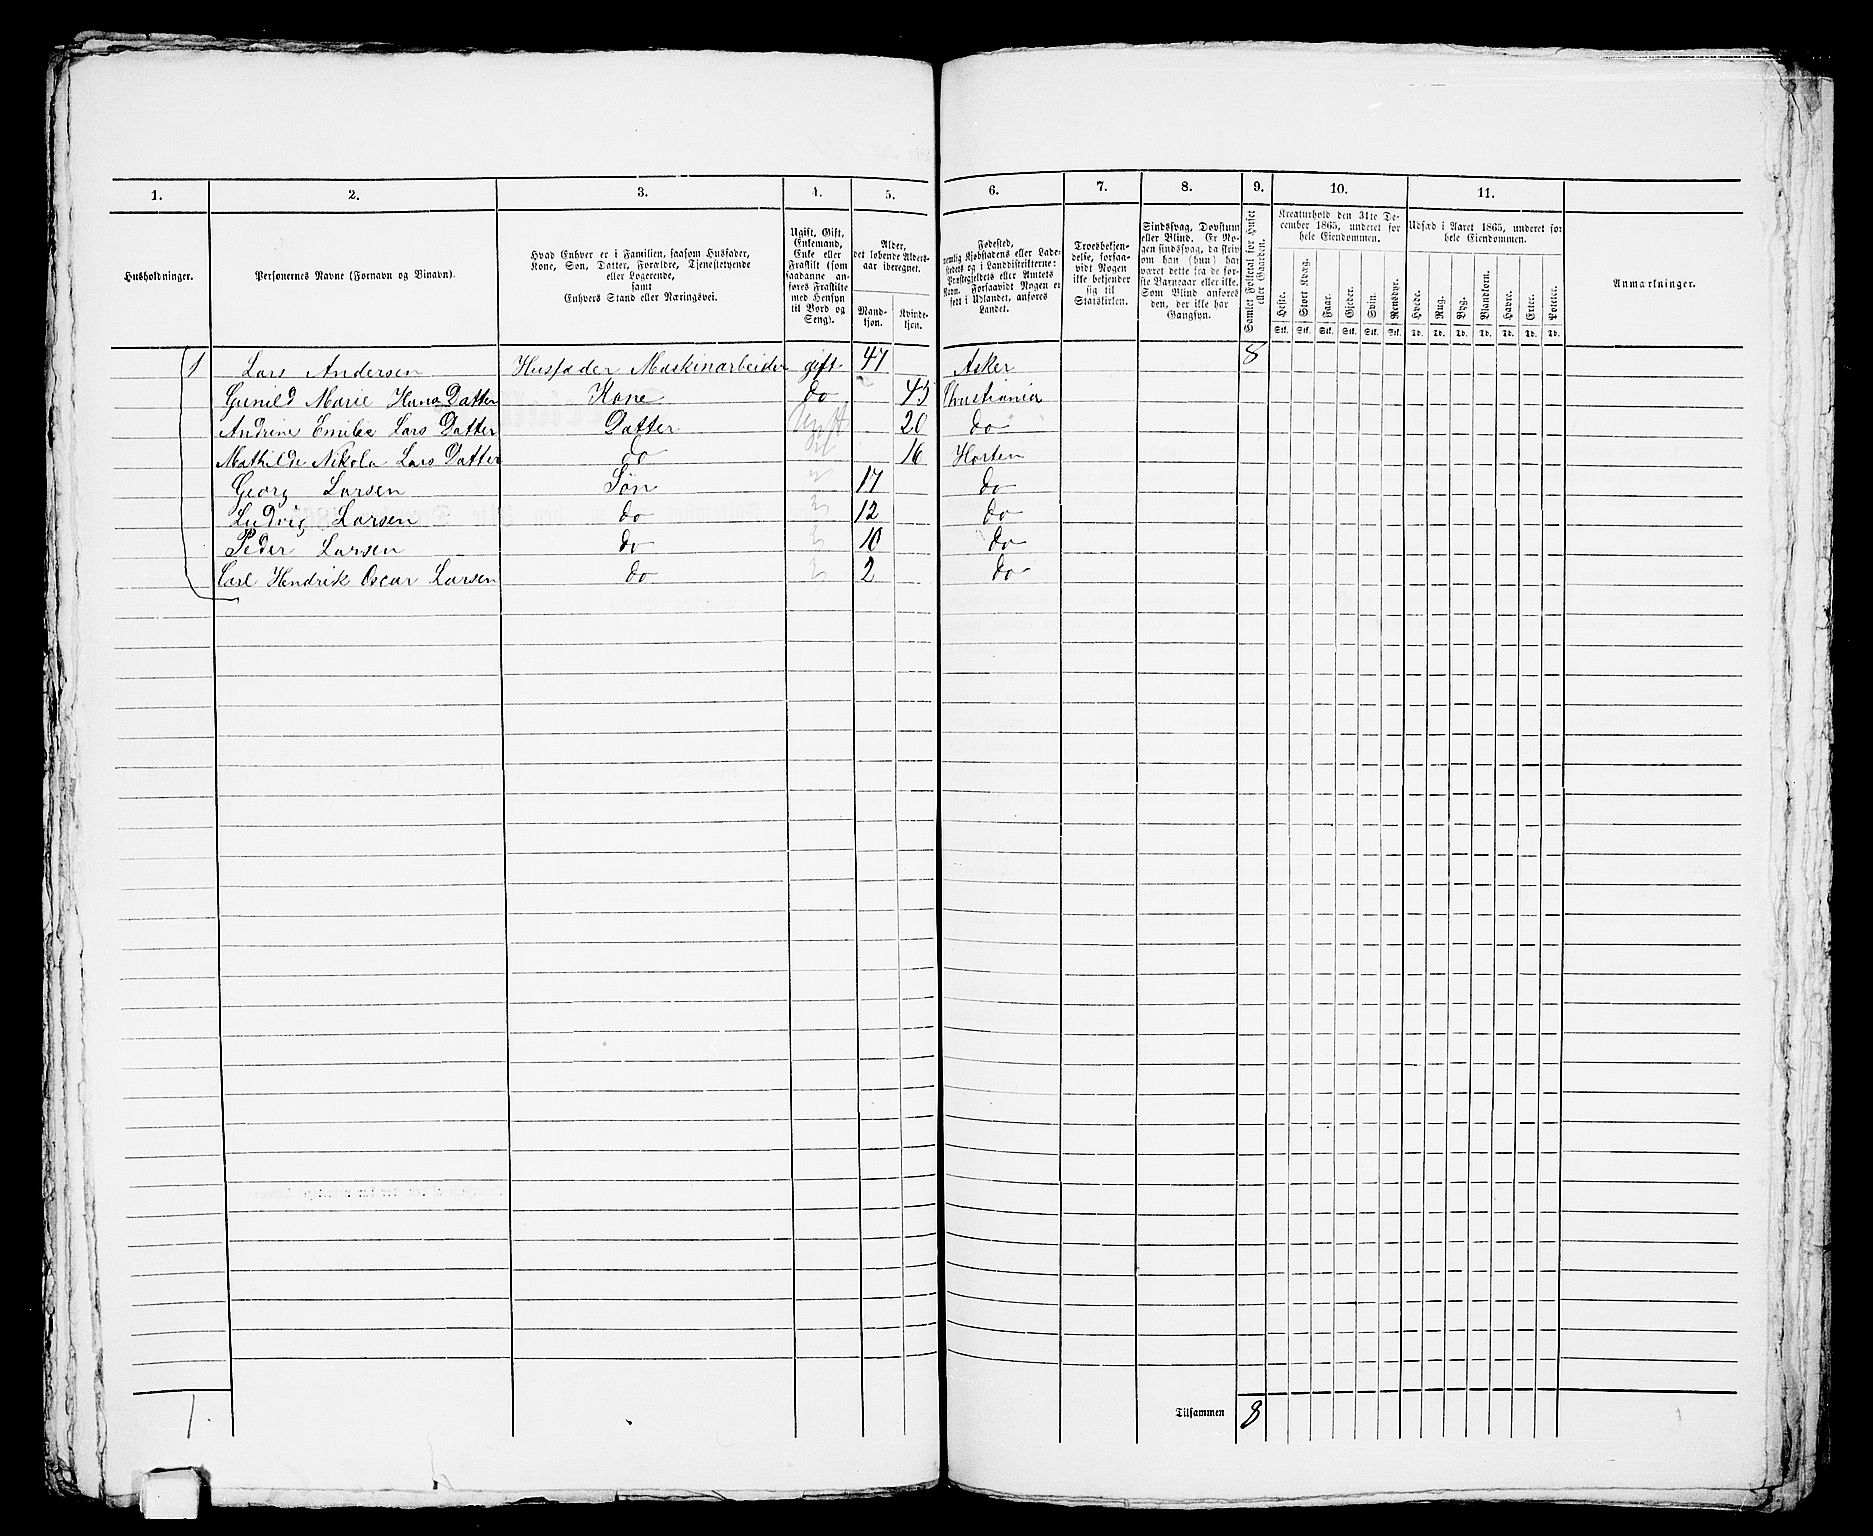 1. 2. 3. 4. 5. 6. 7. 8. 9. 10. 11.
Husholdninger.
Personernes Navne (Fornavn og Binavn).
Hvad Enhver er i Familien, saasom Husfader,
Kone, Søn, Datter, Forældre, Tjenestetyende
eller Logerende,
samt
Enhvers Stand eller Næringsvei.
Ugift, Gift,
Enkemand,
Enke eller
Fraskilt (som
saadanne an-
føres Fraskilte
med Hensyn
til Bord og
Seng).
Alder,
det løbende Alders-
aar iberegnet.
Mand-
kjøn.
Kvinde-
kjøn.
Fødested,
nemlig Kjøbstadens eller Lade-
stedets og i Landdistrikterne:
Præstegjeldets eller Amtets
Navn. Forsaavidt Nogen er
født i Udlandet, anføres
Landet.
Troesbekjen-
delse, forsaa-
vidt Nogen
ikke bekjender
sig til
Statskirken.
Sindssvag, Døvstum
eller Blind. Er No-
gen sindssvag, da skriv
om han (hun) har
været dette fra de før-
ste Barneaar eller ikke.
Som Blind anføres
den, der ikke har
Gangsyn.
Samlet Folketal for Huset
eller Gaarden.
Kreaturhold den 31te De-
cember 1865, underet for
hele Eiendommen.
Heste. Stort Kvæg. Faar. Gjeder. Svin. Rensdyr.
Stk. Stk. Stk. Stk. Stk. Stk.
Udsæd i Aaret 1865, underet for
hele Eiendommen.
Hvede. Rug. Byg. Blandkorn. Havre. Erter. Poteter.
Td. Td. Td. Td. Td. Td. Td.
Anmærkninger.
1 Lars Andersen Husfader Maskinarbeider gift 47 Asker 8
Gunild Marie Hans Datter Kone do 45 Christiania
Andrine Emilie Lars Datter Datter Ugift 20 do
Mathilde Nikola Lars Datter do 16 Horten
Georg Larsen Søn 17 do
Ludvig Larsen do 12 do
Peder Larsen do 10 do
Carl Hendrik Oscar Larsen do 2 do
1.
Tilsammen 8